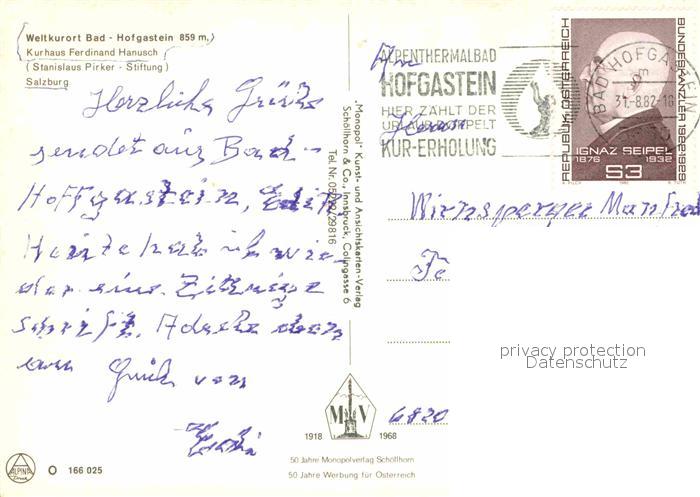 Weltkurort Bad - Hofgastein 859 m,
Kurhaus Ferdinand Hanusch
(Stanislaus Pirker - Stiftung)
Salzburg
Herzliche Grüße
sendet aus Bad-
Hofgastein, Edith
Heute hab ich wie-
der eine
von
„Monopol" Kunst- und Ansichtskarten-Verlag
Schöllhorn & Co., Innsbruck, Colingasse 6
Tel. Nr.
An
ALPENTHERMALBAD
HOFGASTEIN
HIER ZÄHLT DER
URLAUB DOPPELT
KUR-ERHOLUNG
BAD HOFGASTEIN
31.-8.82-18
REPUBLIK ÖSTERREICH
BUNDESKANZLER 1922-1929
IGNAZ SEIPEL
1876 1932
S3
Herrn
Wirnsperger Manfred
privacy protection
Datenschutz
6820
M V
1918 1968
50 Jahre Monopolverlag Schöllhorn
50 Jahre Werbung für Österreich
ALPINA
Druck
O 166 025